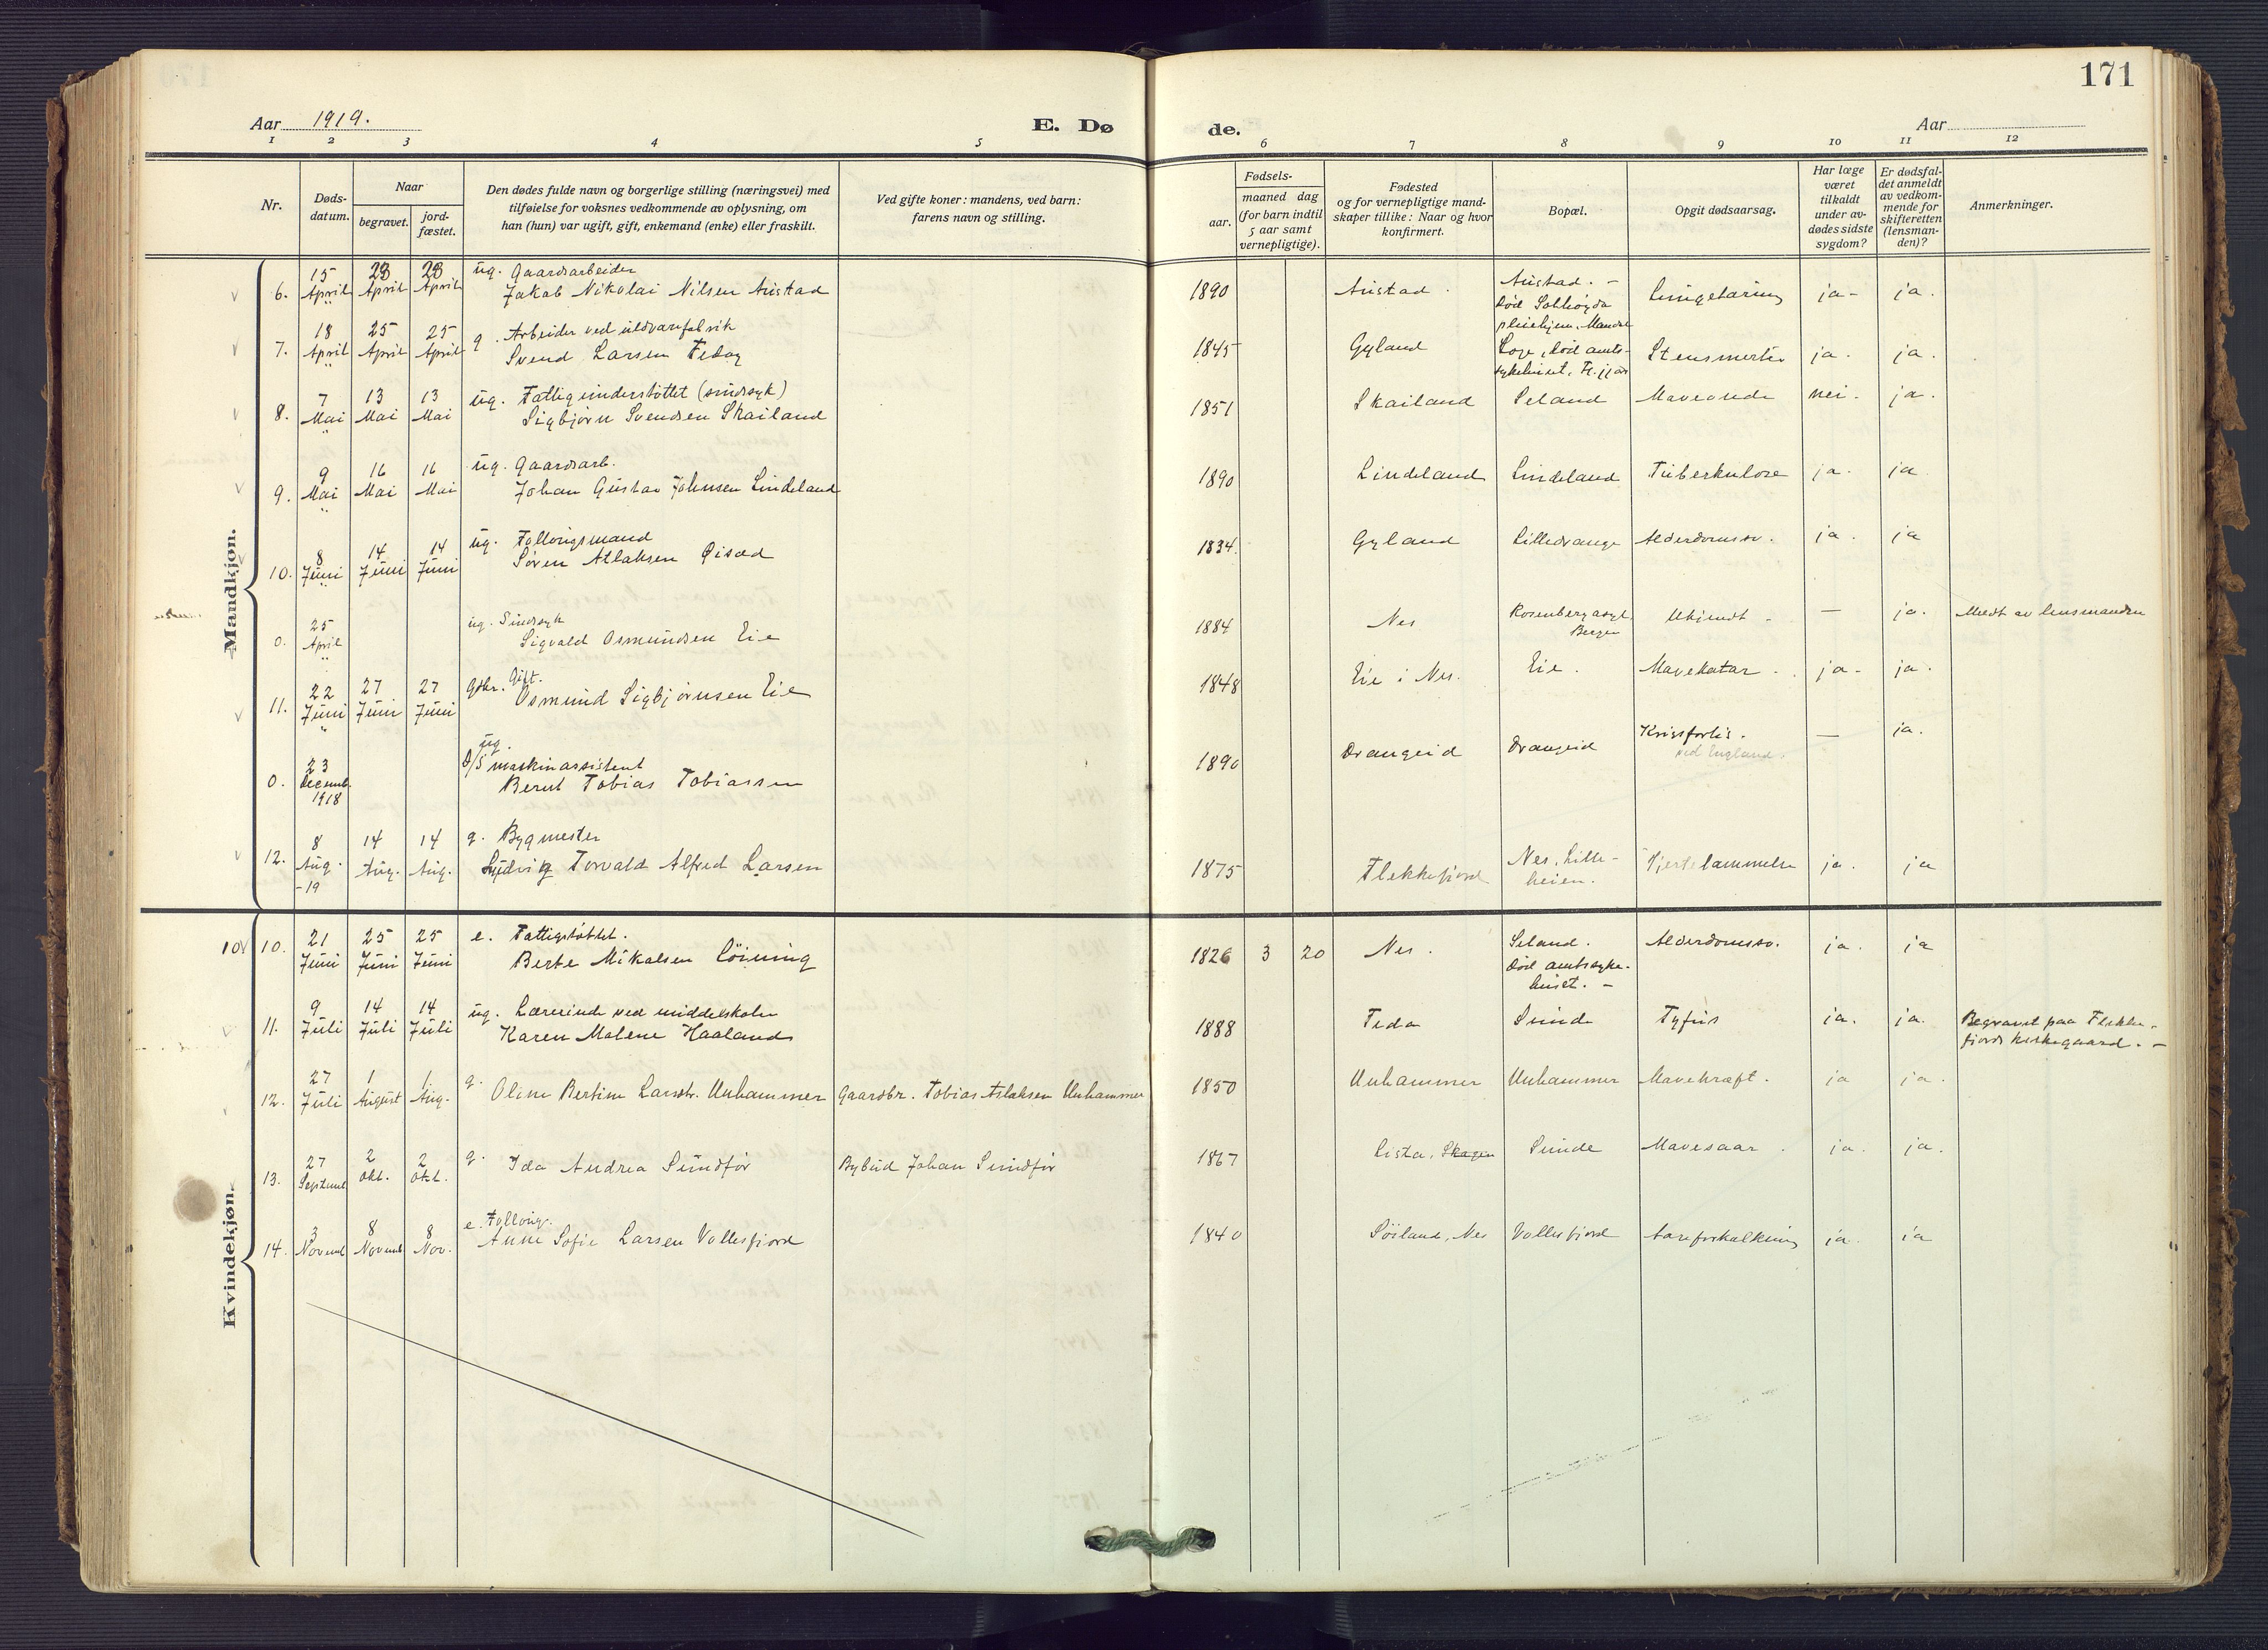 171
Aar 1919.
E. Dø
de.
Aar
1 2 3 4 5 6 7 8 9 10 11 12
Nr.
Døds-datum.
Naar
begravet.
jord-fæstet.
Den dødes fulde navn og borgerlige stilling (næringsvei) med
tilføielse for voksnes vedkommende av oplysning, om
han (hun) var ugift, gift, enkemand (enke) eller fraskilt.
Ved gifte koner: mandens, ved barn:
farens navn og stilling.
Fødsels-
aar.
maaned dag
(for barn indtil
5 aar samt
vernepligtige).
Fødested
og for vernepligtige mand-
skaper tillike: Naar og hvor
konfirmert.
Bopæl.
Opgit dødsaarsag.
Har læge
været
tilkaldt
under av-
dødes sidste
sygdom?
Er dødsfal-
det anmeldt
av vedkom-
mende for
skifteretten
(lensman-
den)?
Anmerkninger.
Mandkjøn.
6. 15 April 23 April 23 April ug. Gaardsarbeider
Jakob Nikolai Nilsen Austad 1890 Austad. Austad. - død Solhøgda pleiehjem. Mandal Lungetæring ja- ja.
7. 18 April 25 April 25 April g. Arbeider ved uldvarefabrik
Svend Larsen 1845 Gyland død amts-sykehuset, Stensmerter ja. ja.
8. 7 Mai 13 Mai 13 Mai ug. Fattigunderstøttet (sindssyk)
Sigbjørn Svendsen Skailand 1851 Skailand Seland Maveonde nei. ja.
9. 9 Mai 16 Mai 16 Mai ug. Gaardsarb.
Johan Gustav Johnsen Lindeland 1890 Lindeland Lindeland Tuberkulose ja. ja
10. 8 Juni 14 Juni 14 Juni ug. Føllougsmand
Søren Atlaksen Øisæd 1834. Gyland Lilledrange Alderdomssv. ja. ja
0. 25 April ug. Sindssyk
Sigvald Osmundsen Eie 1884 Nes Rosenberg asyl, Bergen Ukjendt - — ja. Meldt av lensmanden
11. 22 Juni 27 Juni 27 Juni Gbr. Gift.
Osmund Sigbjørnsen Eie 1848 Eie i Nes. Eie. Mavekatar. ja- ja.
0. 23 Decemb. 1918 ug. D/S maskinassistent
Bernt Tobias Tobiassen 1890 Drangeid Drangeid Krigsforlis. ved England. — ja.
12. 8 Aug. -19 14 Aug. 14 Aug. g. Bygmester
Ludvig Torvald Alfred Larsen 1875 Flekkefjord Nes, Lille-heien. Hjertelammelse ja. ja
Kvindekjøn.
10 10. 21 Juni 25 Juni 25 Juni e. Fattigstøttet.
Berte Mikalsen Löining 1826 3 20 Nes. Seland. død amtssyke-huset. - Alderdomssv. ja. ja
11. 9 Juli 14 Juli 14 Juli ug. Lærerinde ved middelskolen
Karen Malene Haaland 1888 Feda Sunde Tyfus ja. ja. Begravet paa Flekke-
fjords kirkegaard. -
12. 27 Juli 1 August 1 Aug. g. Oline Bertine Larsdtr. Unhammer Gaardbr. Tobias Aslaksen Unhammer 1850 Unhammer Unhammer Mavekræft. ja ja.
13. 27 Septemb 2 Okt. 2 Okt. g. Ida Andrea Sundför Bybud Johan Sundför 1867 Lista, Skagen Sunde Mavesaar. ja. ja.
14. 3 Novemb 8 Novemb 8 Nov. e. Følloug.
Anne Sofie Larsen Vollesfjord 1840 Söiland, Nes Vollesfjord Aareforkalkning ja. ja